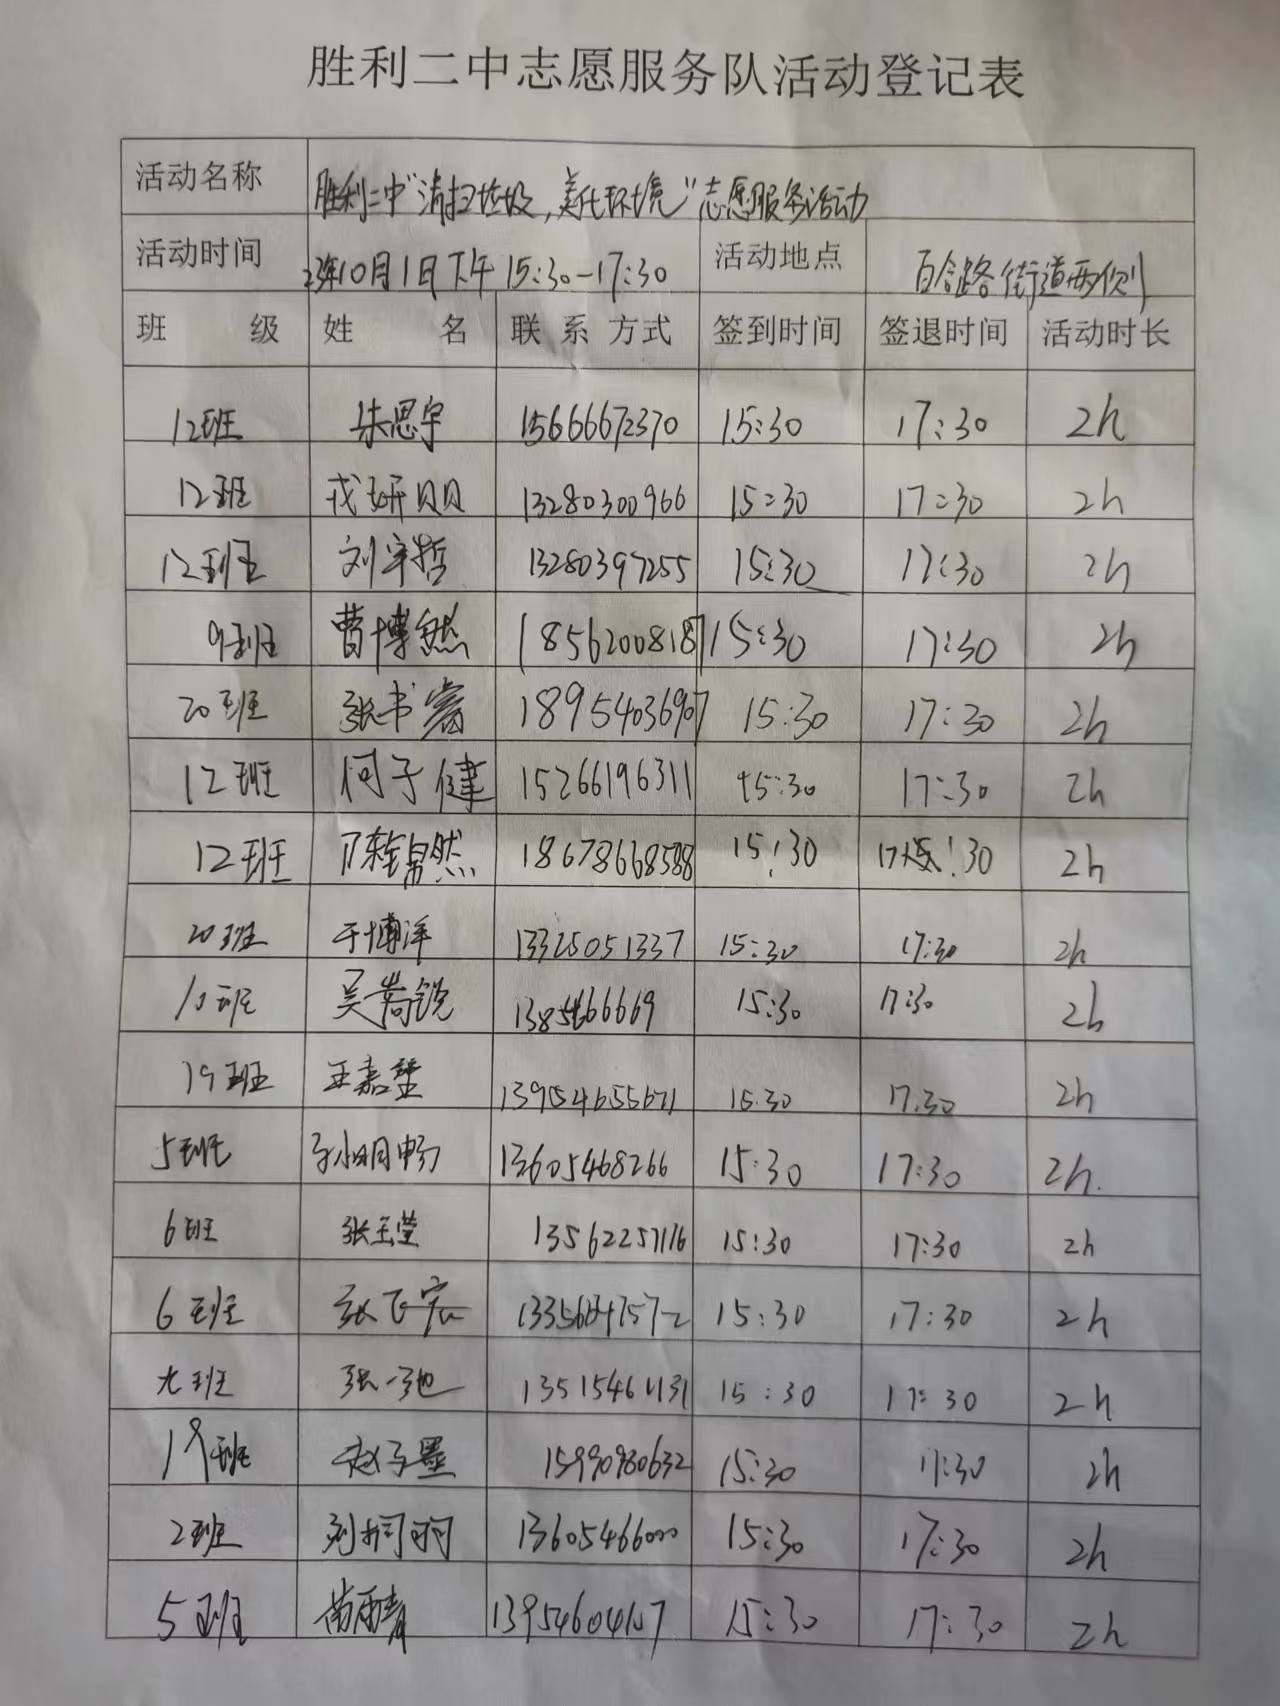 胜利二中志愿服务队活动登记表
活动名称 胜利二中"清扫垃圾,美化环境"志愿服务活动
活动时间 23年10月1日下午 15:30-17:30 活动地点 百合路街道两侧
班 级 姓 名 联 系 方式 签到时间 签退时间 活动时长
12班 朱思宇 15666672370 15:30 17:30 2h
12班 戎妍贝贝 13280300966 15:30 17:30 2h
12班 刘宇哲 13280397255 15:30 17:30 2h
9班 曹博然 18562008187 15:30 17:30 2h
20班 张书睿 18954036907 15:30 17:30 2h
12班 何子健 15266196311 15:30 17:30 2h
12班 18678668588 15:30 17:30 2h
20班 于博洋 15:30 17:30 2h
10班 吴嵩锐 15:30 17:30 2h
19班 王嘉莹 15:30 17:30 2h
5班 孙明畅 13605468266 15:30 17:30 2h.
6班 张玉莹 13562257116 15:30 17:30 2h
6班 张飞宏 15:30 17:30 2h
九班 张一弛 15:30 17:30 2h
19班 赵子墨 15990980632 15:30 17:30 2h
2班 15:30 17:30 2h
5班 苗雨青 15:30 17:30 2h